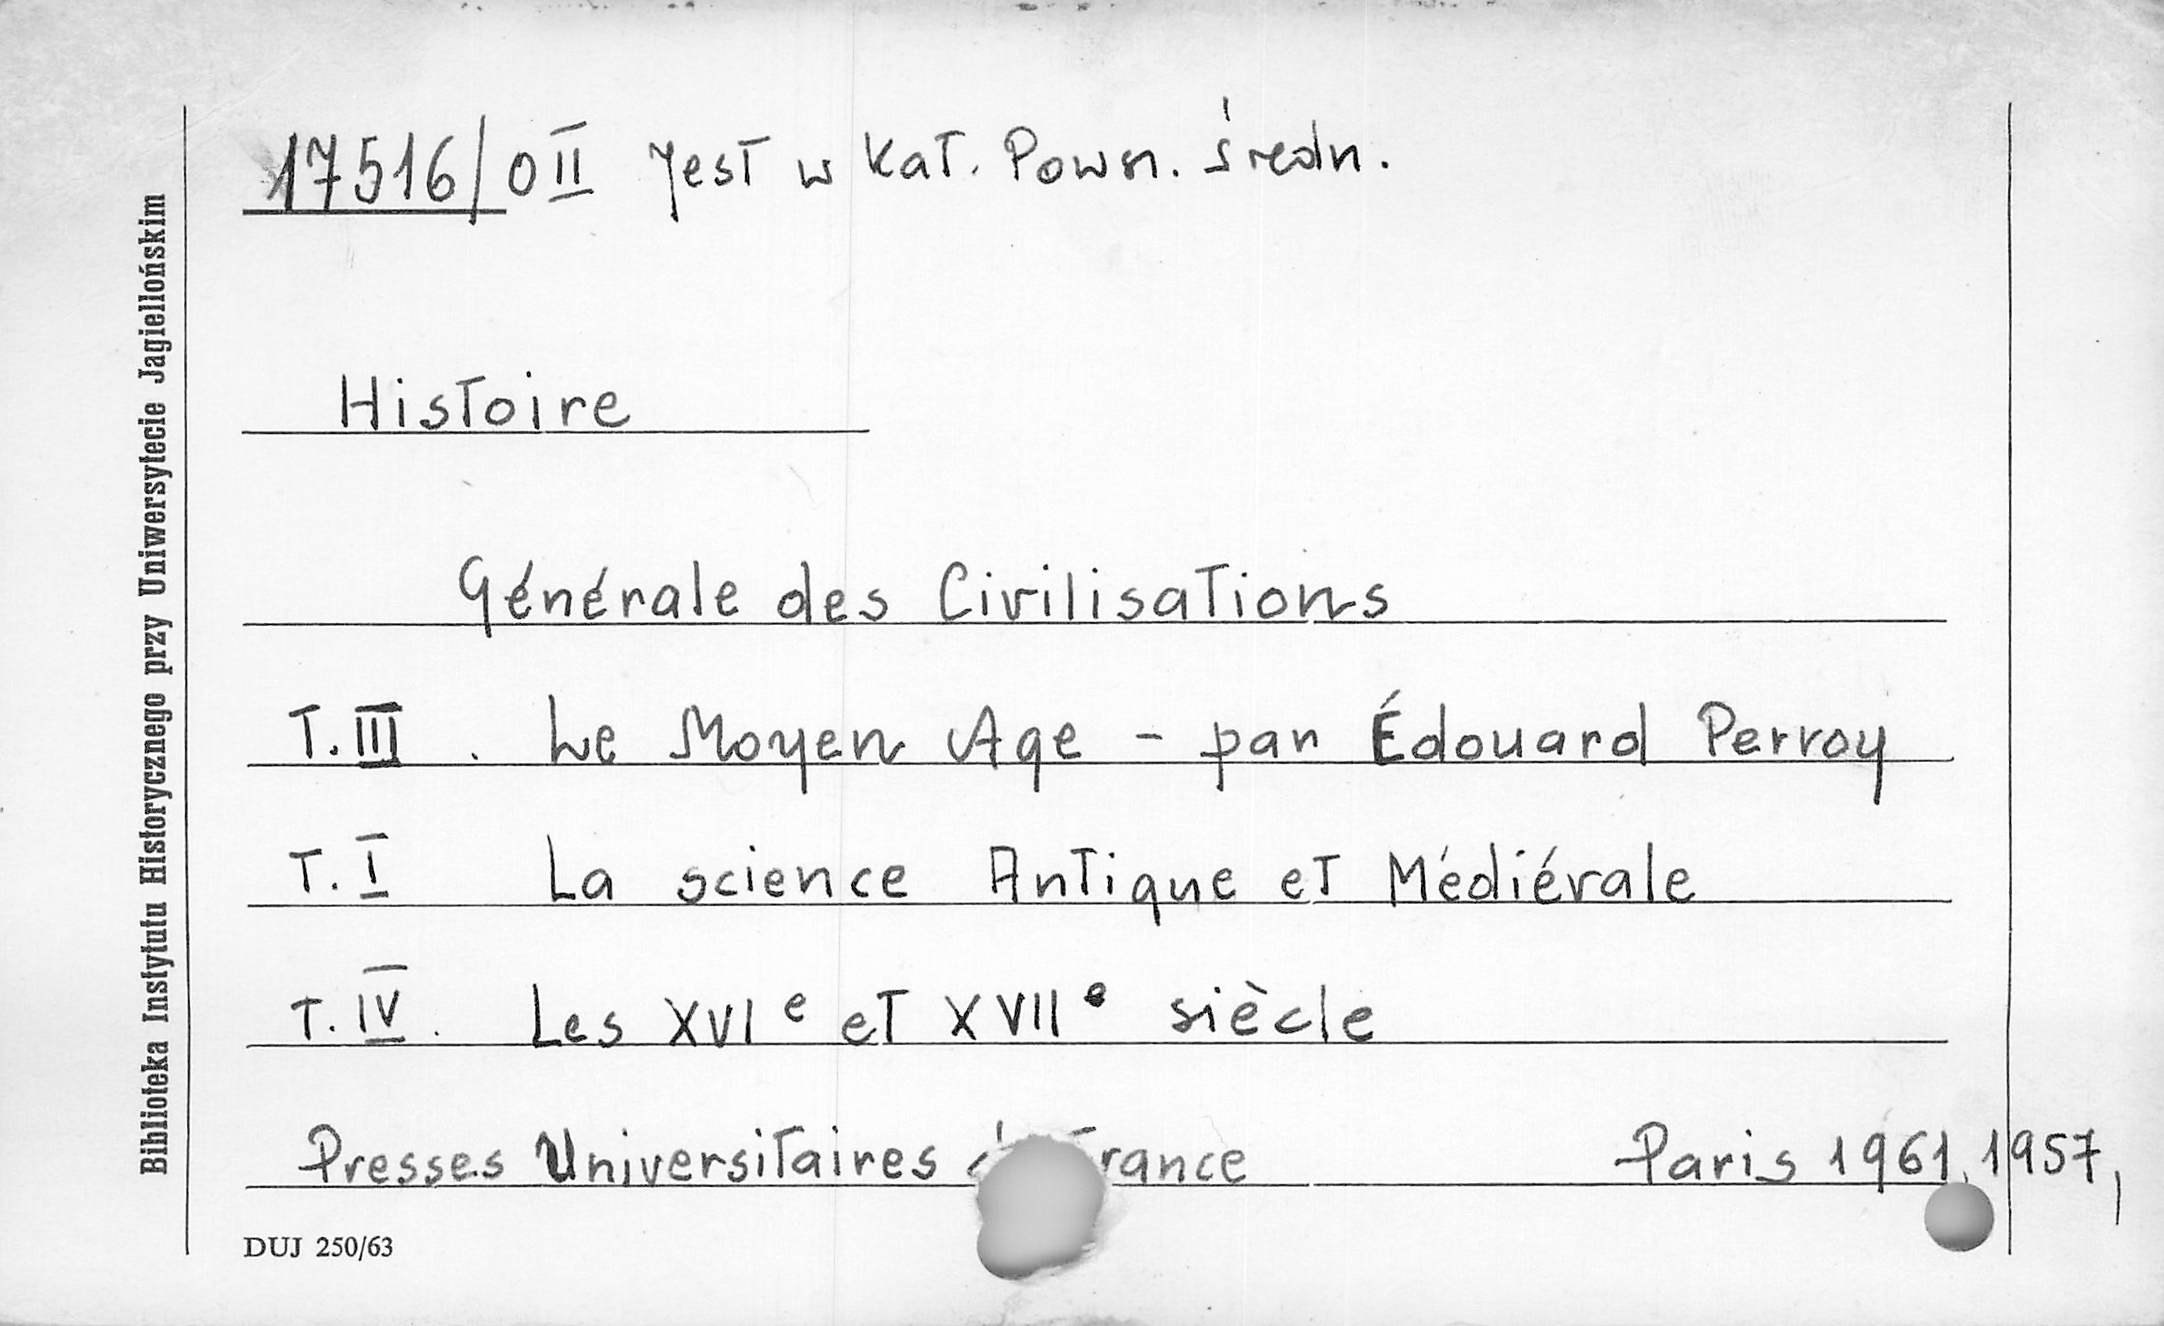 17516/0II Jest w Kat. Pown. średn.
Histoire
Générale des Civilisations
T.III. Le Moyen Age - par Édouard Perroy
T.I La science Antique et Médiérale
T.IV. Les XVIe et XVIIe siècle
Presses Universitaires Paris 1961, 1957,
DUJ 250/63
Biblioteka Instytutu Historycznego przy Uniwersytecie Jagiellońskim